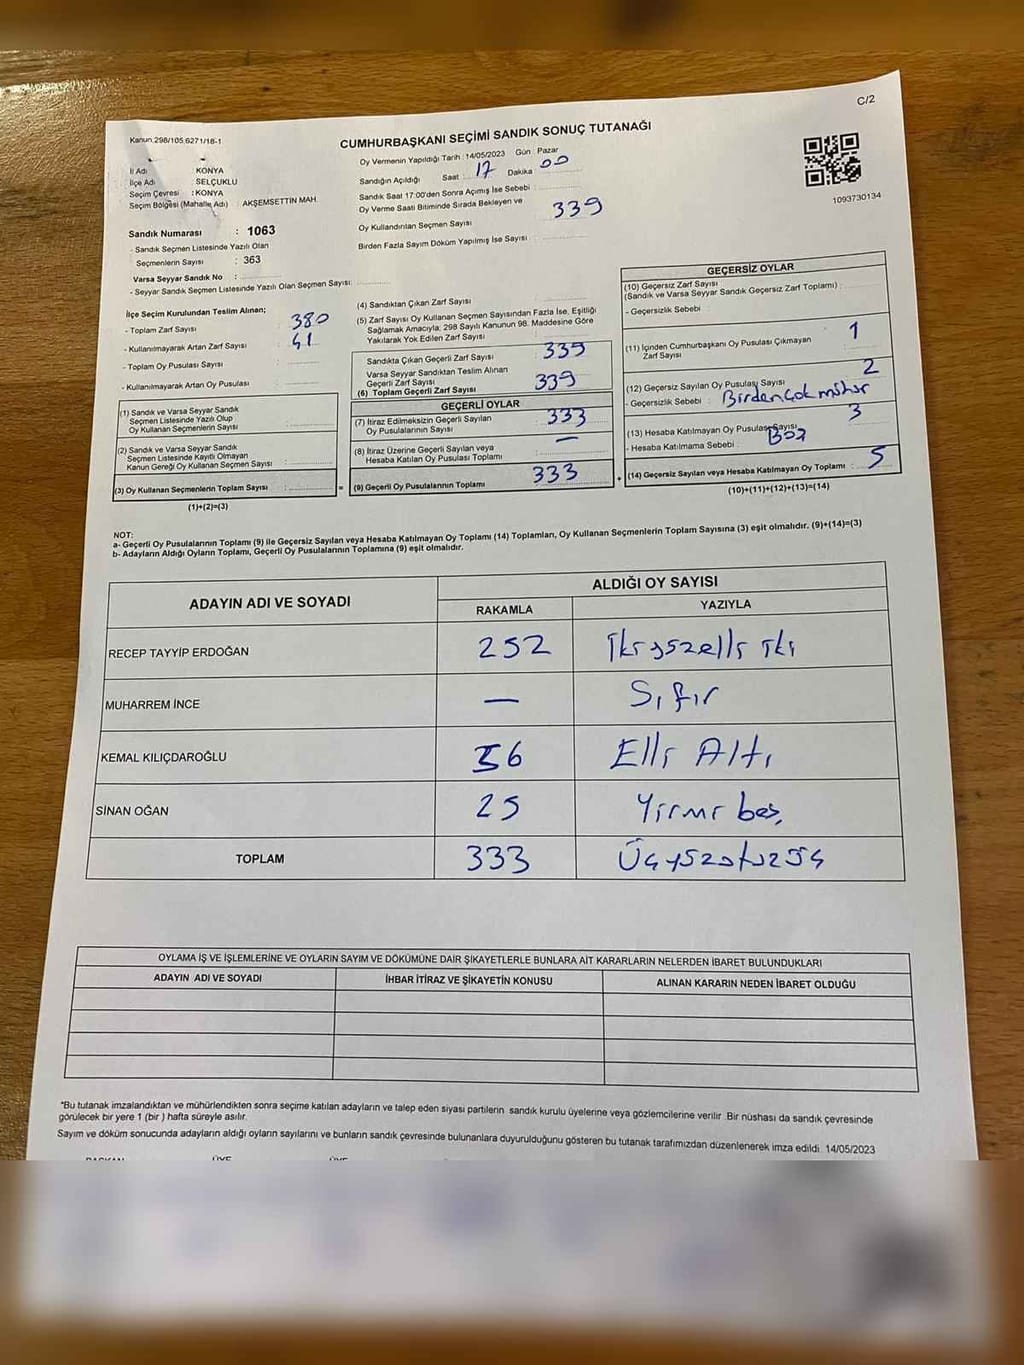 C/2
Kanun 298/105,6271/18-1
CUMHURBAŞKANI SEÇİMİ SANDIK SONUÇ TUTANAĞI
İl Adı KONYA
İlçe Adı SELÇUKLU
Seçim Çevresi : KONYA
Seçim Bölgesi (Mahalle Adı) AKŞEMSETTİN MAH.
Sandık Numarası : 1063
- Sandık Seçmen Listesinde Yazılı Olan
Seçmenlerin Sayısı : 363
Varsa Seyyar Sandık No :
- Seyyar Sandık Seçmen Listesinde Yazılı Olan Seçmen Sayısı:
Oy Vermenin Yapıldığı Tarih : 14/05/2023 Gün Pazar
Sandığın Açıldığı Saat 17 Dakika 00
Sandık Saat 17:00'den Sonra Açımış İse Sebebi
Oy Verme Saati Bitiminde Sırada Bekleyen ve
Oy Kullandırılan Seçmen Sayısı 339
Birden Fazla Sayım Döküm Yapılmış İse Sayısı
1093730134
İlçe Seçim Kurulundan Teslim Alınan;
- Toplam Zarf Sayısı 380
- Kullanılmayarak Artan Zarf Sayısı 41
- Toplam Oy Pusulası Sayısı
- Kullanılmayarak Artan Oy Pusulası
(1) Sandık ve Varsa Seyyar Sandık
Seçmen Listesinde Yazılı Olup
Oy Kullanan Seçmenlerin Sayısı
(2) Sandık ve Varsa Seyyar Sandık
Seçmen Listesinde Kayıtlı Olmayan
Kanun Gereği Oy Kullanan Seçmen Sayısı
(3) Oy Kullanan Seçmenlerin Toplam Sayısı :
(1)+(2)=(3)
(4) Sandıktan Çıkan Zarf Sayısı
(5) Zarf Sayısı Oy Kullanan Seçmen Sayısından Fazla İse, Eşitliği
Sağlamak Amacıyla; 298 Sayılı Kanunun 98. Maddesine Göre
Yakılarak Yok Edilen Zarf Sayısı
Sandıkta Çıkan Geçerli Zarf Sayısı 339
Varsa Seyyar Sandıktan Teslim Alınan
Geçerli Zarf Sayısı
(6) Toplam Geçerli Zarf Sayısı 339
GEÇERLİ OYLAR
(7) İtiraz Edilmeksizin Geçerli Sayılan
Oy Pusulalarının Sayısı 333
(8) İtiraz Üzerine Geçerli Sayılan veya
Hesaba Katılan Oy Pusulası Toplamı —
= (9) Geçerli Oy Pusulalarının Toplamı 333
GEÇERSİZ OYLAR
(10) Geçersiz Zarf Sayısı
(Sandık ve Varsa Seyyar Sandık Geçersiz Zarf Toplamı) :
- Geçersizlik Sebebi
(11) İçinden Cumhurbaşkanı Oy Pusulası Çıkmayan
Zarf Sayısı 1
(12) Geçersiz Sayılan Oy Pusulası Sayısı 2
- Geçersizlik Sebebi : Birden çok mühür
(13) Hesaba Katılmayan Oy Pusulası Sayısı 3
- Hesaba Katılmama Sebebi : Boş
+ (14) Geçersiz Sayılan veya Hesaba Katılmayan Oy Toplamı : 5
(10)+(11)+(12)+(13)=(14)
NOT:
a- Geçerli Oy Pusulalarının Toplamı (9) ile Geçersiz Sayılan veya Hesaba Katılmayan Oy Toplamı (14) Toplamları, Oy Kullanan Seçmenlerin Toplam Sayısına (3) eşit olmalıdır. (9)+(14)=(3)
b- Adayların Aldığı Oyların Toplamı, Geçerli Oy Pusulalarının Toplamına (9) eşit olmalıdır.
ADAYIN ADI VE SOYADI ALDIĞI OY SAYISI
RAKAMLA YAZIYLA
RECEP TAYYİP ERDOĞAN 252 İki yüz elli iki
MUHARREM İNCE — Sıfır
KEMAL KILIÇDAROĞLU 56 Elli Altı
SİNAN OĞAN 25 Yirmi beş
TOPLAM 333 Üç yüz otuz üç
OYLAMA İŞ VE İŞLEMLERİNE VE OYLARIN SAYIM VE DÖKÜMÜNE DAİR ŞİKAYETLERLE BUNLARA AİT KARARLARIN NELERDEN İBARET BULUNDUKLARI
ADAYIN ADI VE SOYADI İHBAR İTİRAZ VE ŞİKAYETİN KONUSU ALINAN KARARIN NEDEN İBARET OLDUĞU
*Bu tutanak imzalandıktan ve mühürlendikten sonra seçime katılan adayların ve talep eden siyasi partilerin sandık kurulu üyelerine veya gözlemcilerine verilir. Bir nüshası da sandık çevresinde
görülecek bir yere 1 (bir) hafta süreyle asılır.
Sayım ve döküm sonucunda adayların aldığı oyların sayılarını ve bunların sandık çevresinde bulunanlara duyurulduğunu gösteren bu tutanak tarafımızdan düzenlenerek imza edildi. 14/05/2023